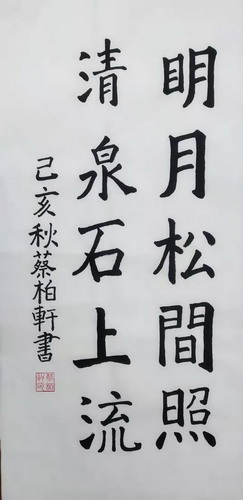 明月松間照
清泉石上流
己亥秋蔡柏軒書